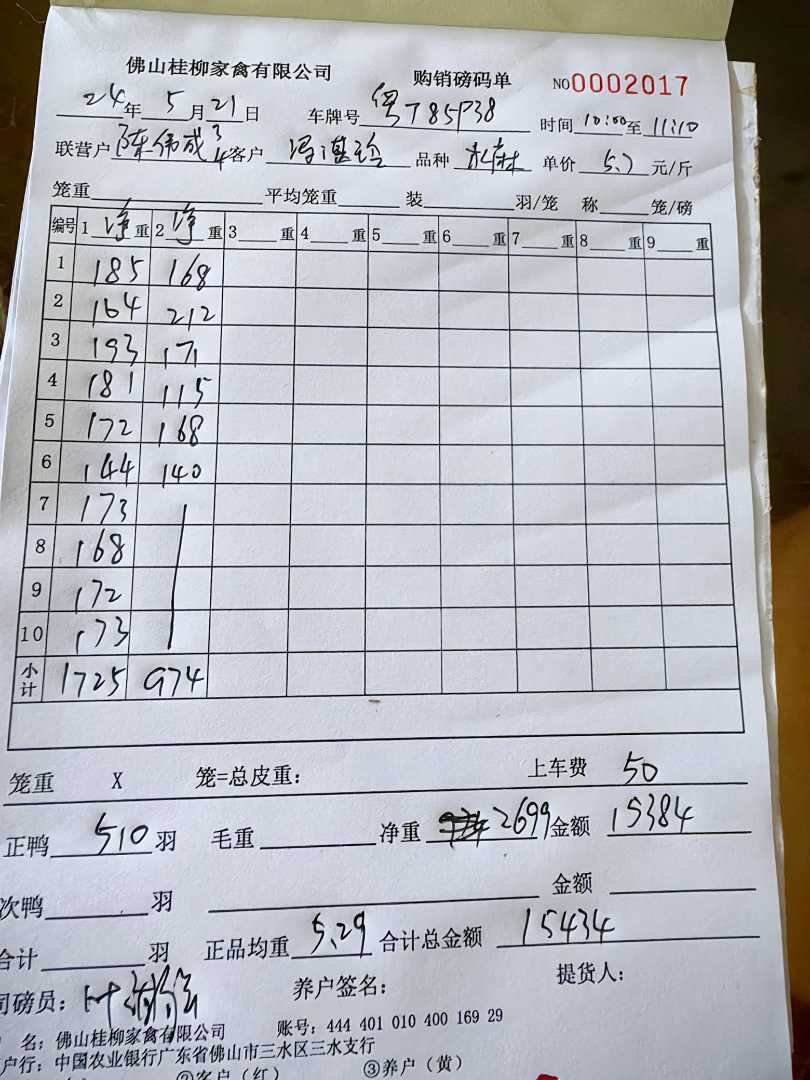 佛山桂柳家禽有限公司 购销磅码单 NO0002017
24年5月21日 车牌号 粤T85P38 时间10:00至11:10
联营户 陈伟成 34 客户 品种 单价5.7元/斤
笼重 平均笼重 装 羽/笼 称 笼/磅
编号 1 净 重 2 净 重 3 重 4 重 5 重 6 重 7 重 8 重 9 重
1 185 168
2 164 212
3 193 171
4 181 115
5 172 168
6 144 140
7 173
8 168
9 172
10 173
小计 1725 974
笼重 X 笼=总皮重： 上车费 50
正鸭 510 羽 毛重 净重 2699 金额 15384
次鸭 羽 金额
合计 羽 正品均重 5.29 合计总金额 15434
司磅员： 叶 养户签名： 提货人：
名：佛山桂柳家禽有限公司 账号：444 401 010 400 169 29
户行：中国农业银行广东省佛山市三水区三水支行
②客户（红） ③养户（黄）